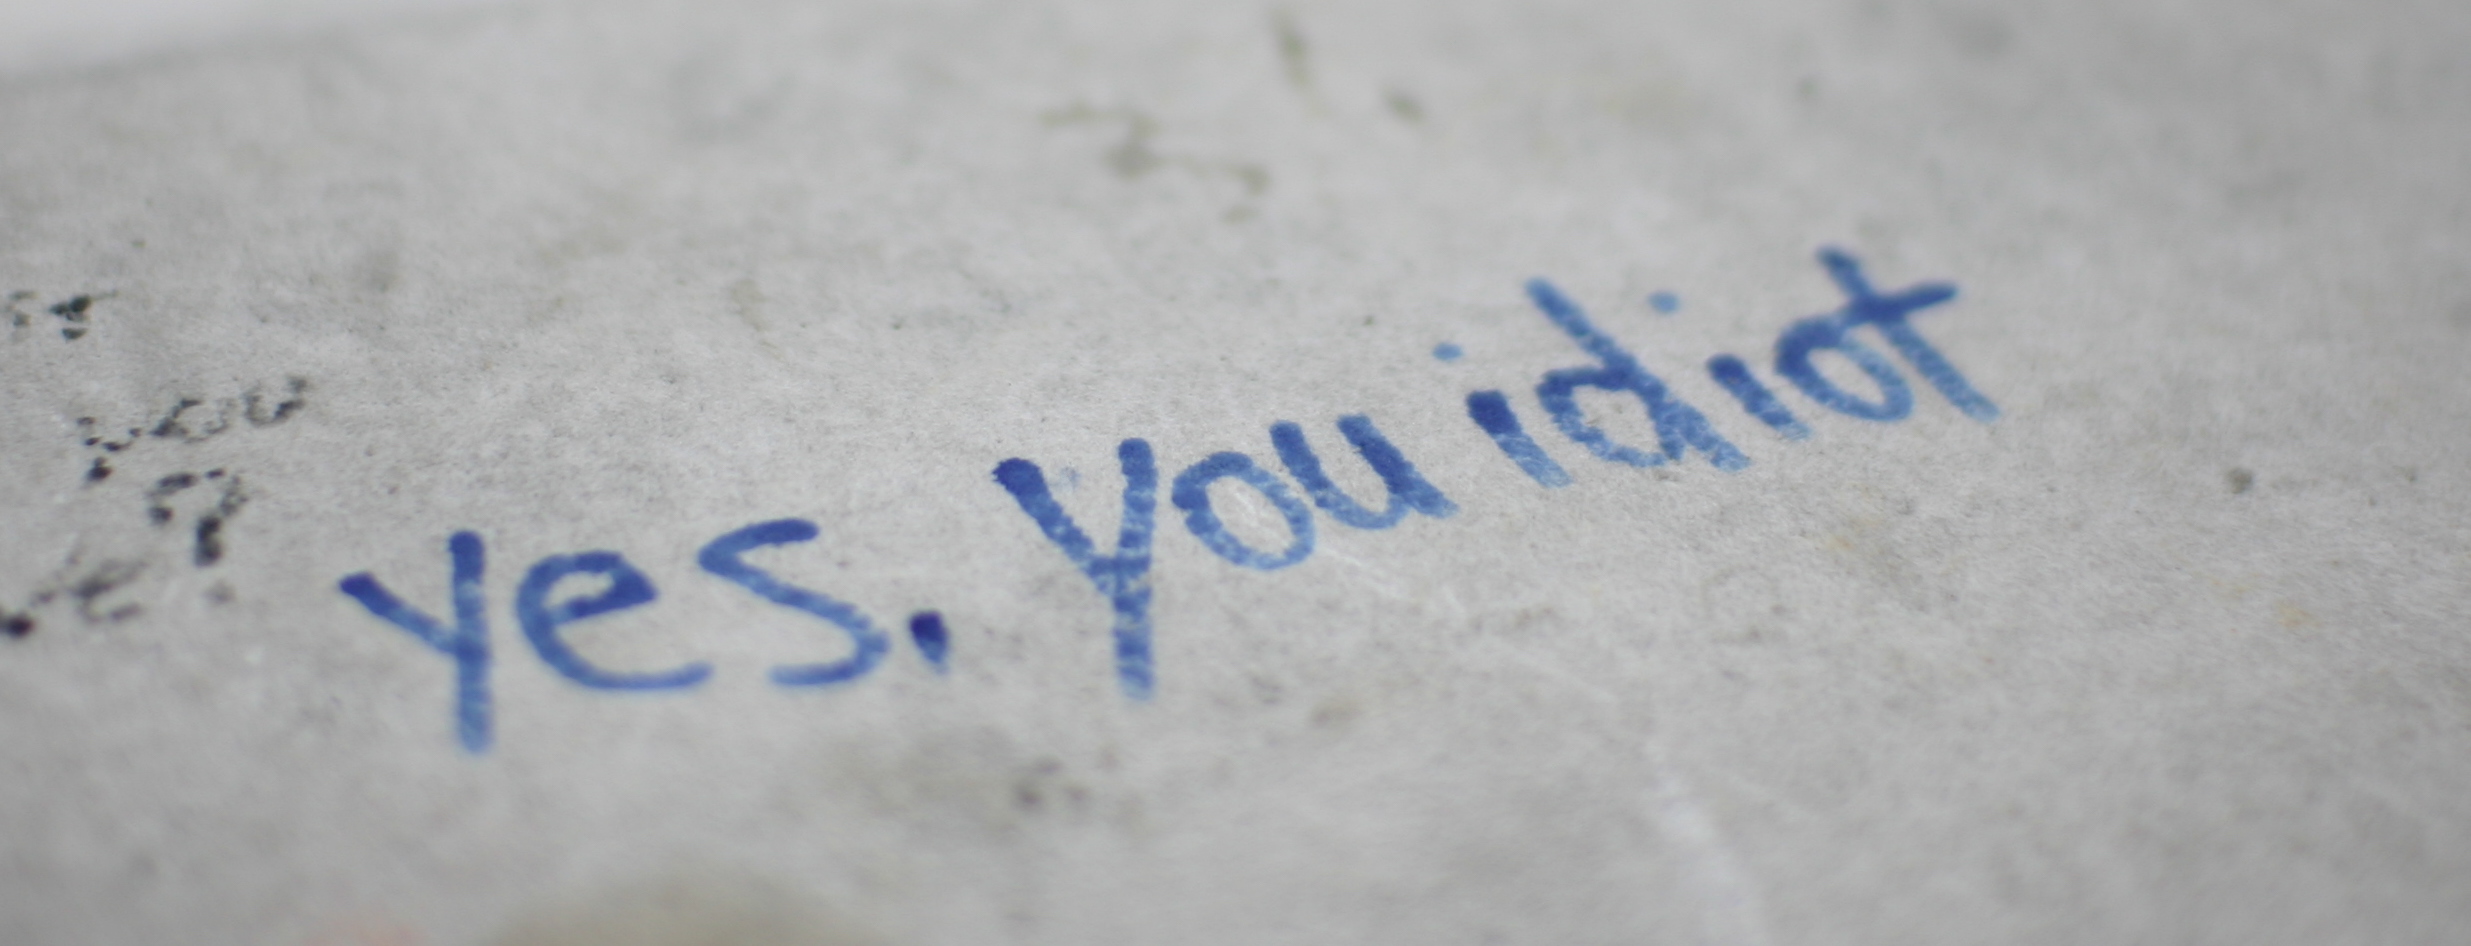 you
?
yes. You idiot